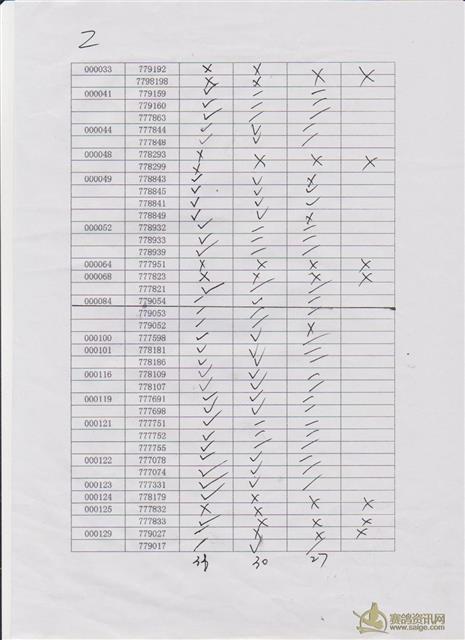 2
000033 779192 × × × ×
7798198 × × × ×
000041 779159 ✓ — —
779160 ✓ — —
777863 ✓ — —
000044 777844 ✓ ✓ —
777848 ✓ ✓ —
000048 778293 ×
778299 × × × ×
000049 778843 ✓ ✓ ×
778845 ✓ ✓ ✓
778841 ✓ ✓ ✓
778849 ✓ ✓ ×
000052 778932 ✓ — —
778933 ✓ — —
778939 ✓ — —
000064 777951 × × × ×
000068 777823 × × × ×
777821 ✓ — —
000084 779054 — ✓ —
779053 — — —
779052 — — ×
000100 777598 ✓ ✓ —
000101 778181 ✓ ✓ —
778186 ✓ ✓ —
000116 778109 ✓ ✓ —
778107 ✓ ✓ —
000119 777691 ✓ ✓ —
777698 ✓ ✓ —
000121 777751 ✓ — —
777752 ✓ — —
777755 ✓ — —
000122 777078 ✓ ✓ —
777074 ✓ ✓ —
000123 777331 ✓ ✓ —
000124 778179 ✓ × × ×
000125 777832 × × × ×
777833 ✓ × × ×
000129 779027 — × × ×
779017 — ✓ —
30 27
赛鸽资讯网
www.saige.com